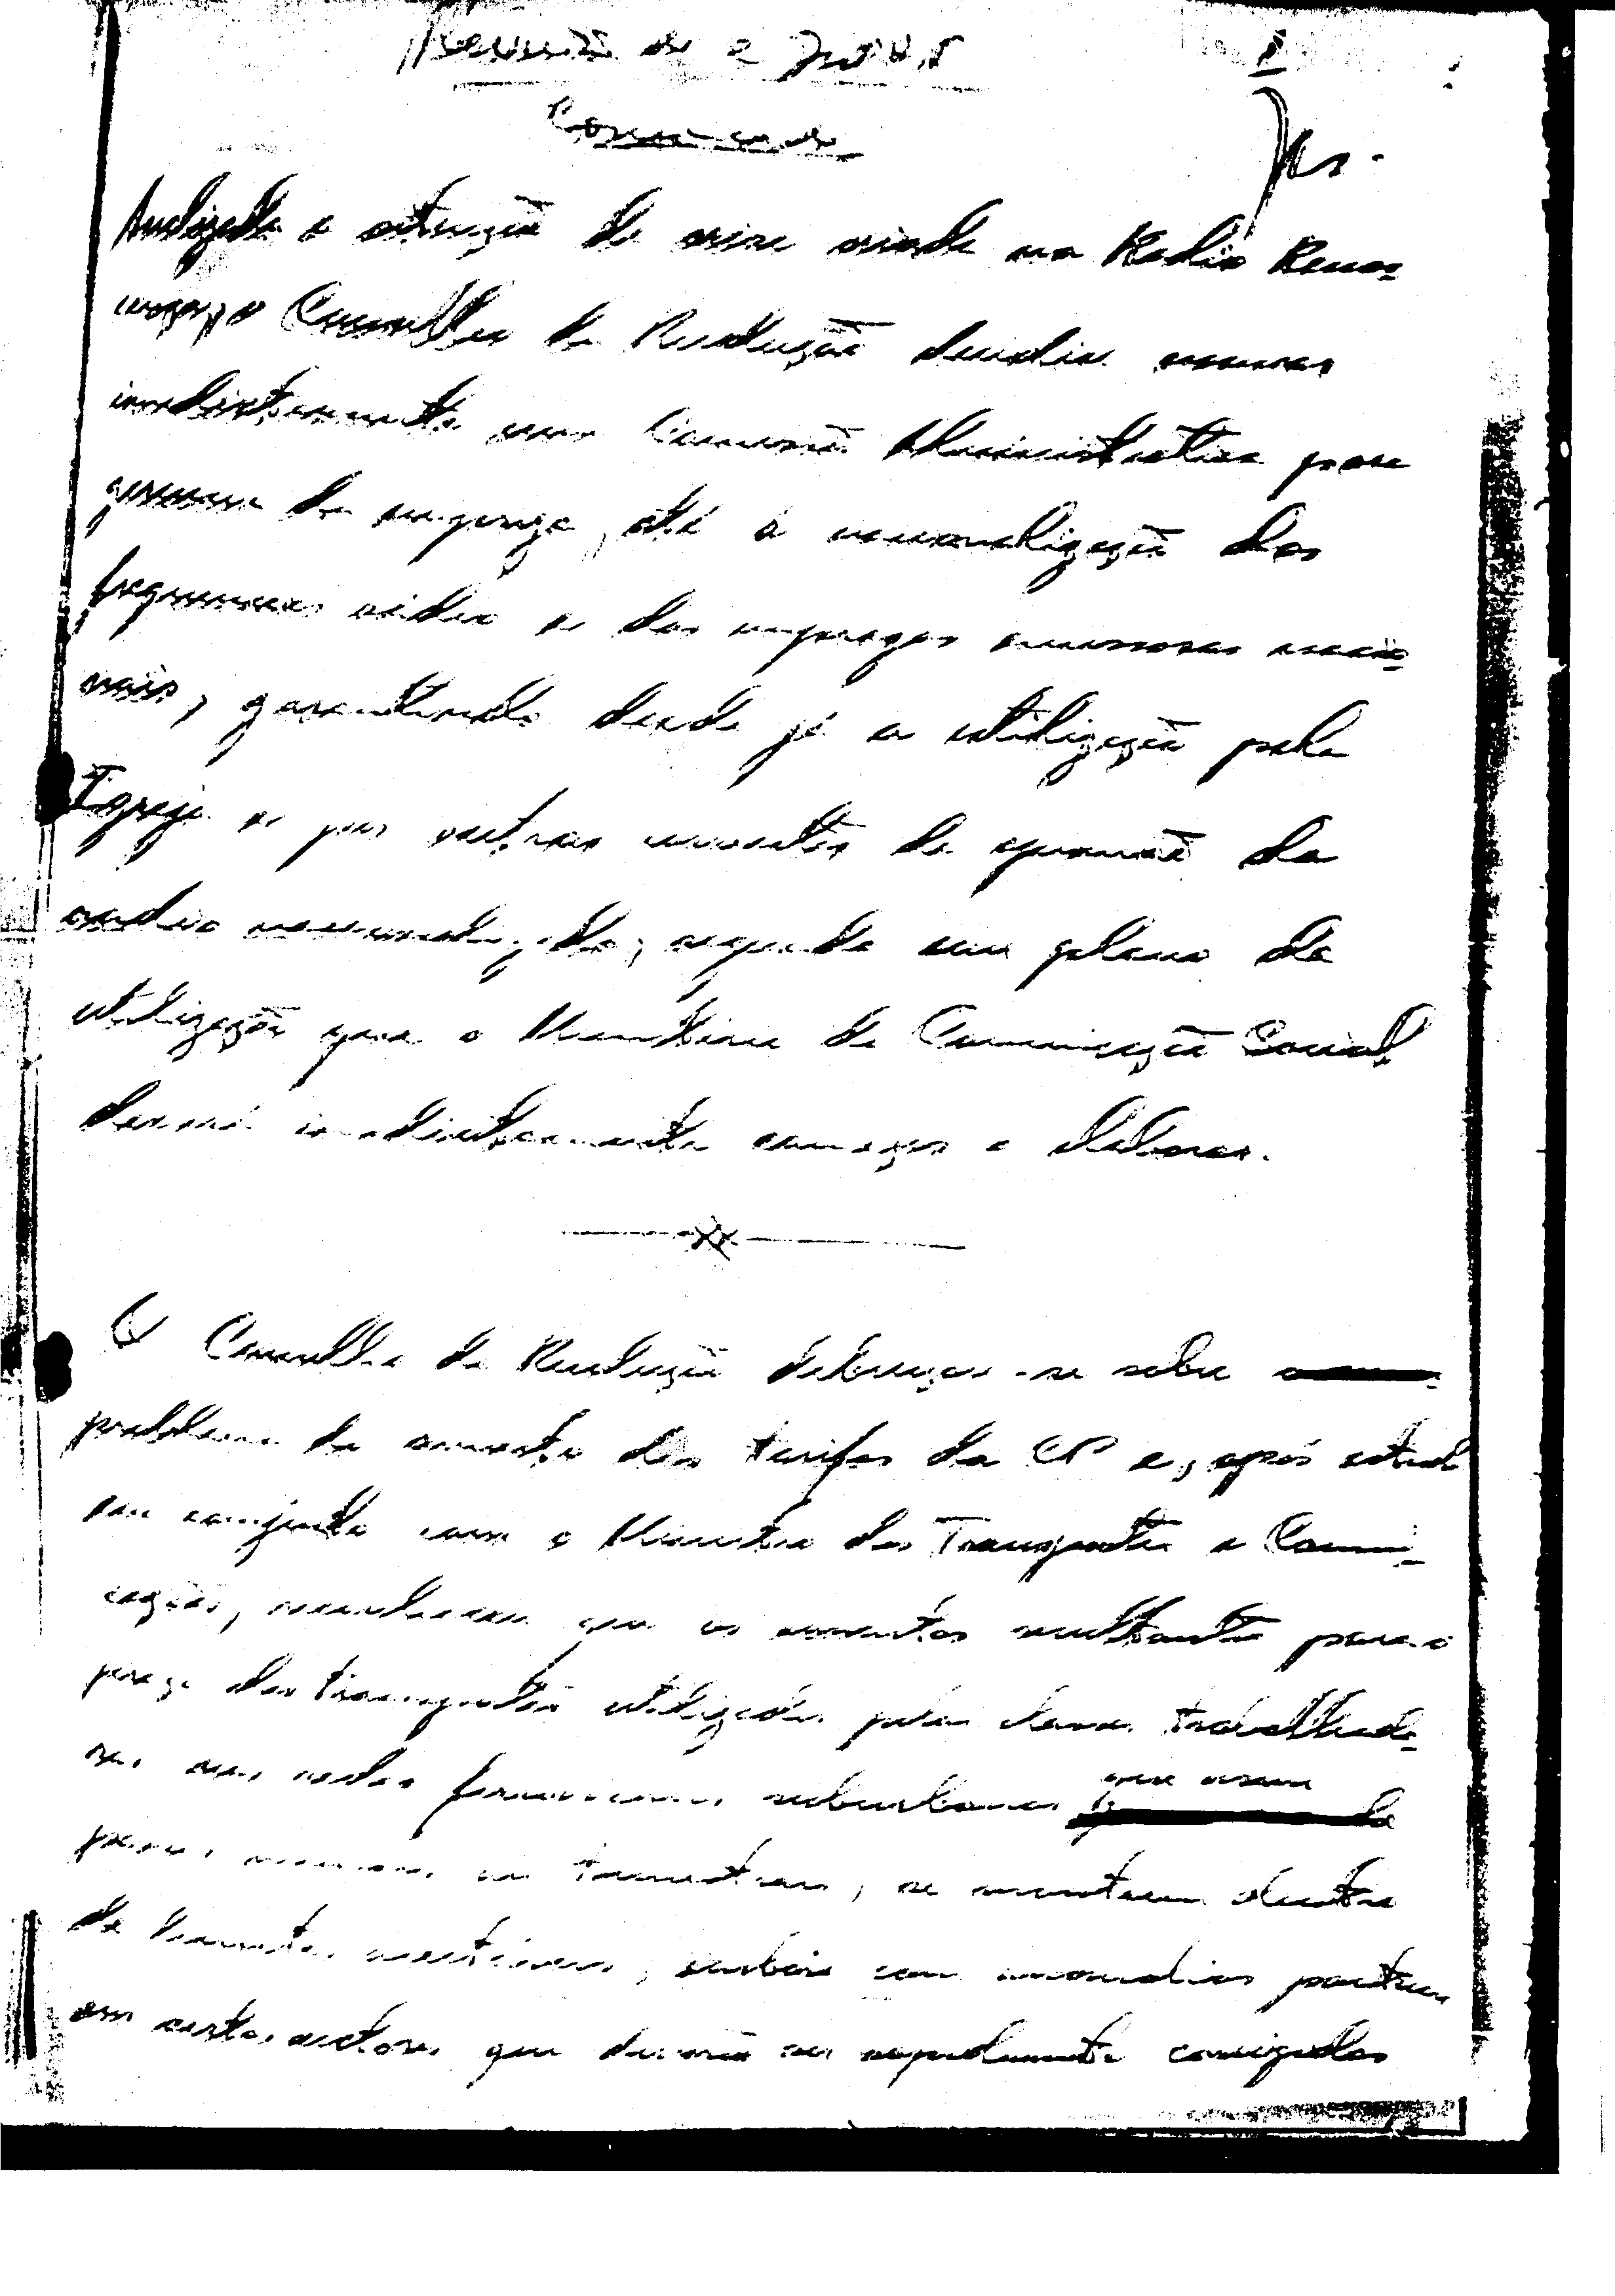 Reunião de 2 Jul 75
Comunicado
Analizada a situação de crise criada na Rádio Renas-
cença, o Conselho da Revolução decidiu nomear
imediatamente uma Comissão Administrativa para
gerência da empresa, até à nacionalização das
frequências rádio e das empresas emissoras nacio-
nais, garantindo desde já a utilização pela
Igreja e por outras correntes de opinião da
rádio nacionalizada, segundo um plano de
utilização que o Ministério da Comunicação Social
deverá imediatamente começar a elaborar.
O Conselho da Revolução debruçou-se sobre o
problema do aumento das tarifas da CP e, após estudo
em conjunto com o Ministro dos Transportes e Comuni-
cações, considerou que os aumentos resultantes para o
preço dos transportes utilizados pelas classes trabalhado-
ras nas redes ferroviárias suburbanas que usam
passes mensais ou trimestrais, se mantêm dentro
de limites aceitáveis, embora com anomalias
em certos sectores que deverão ser rapidamente corrigidas